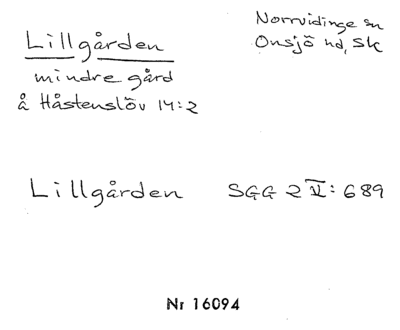 Lillgården
mindre gård
å Håstenslöv 14:2
Norrvidinge sn
Onsjö hd, Sk
Lillgården SGG 2 V: 689
Nr 16094